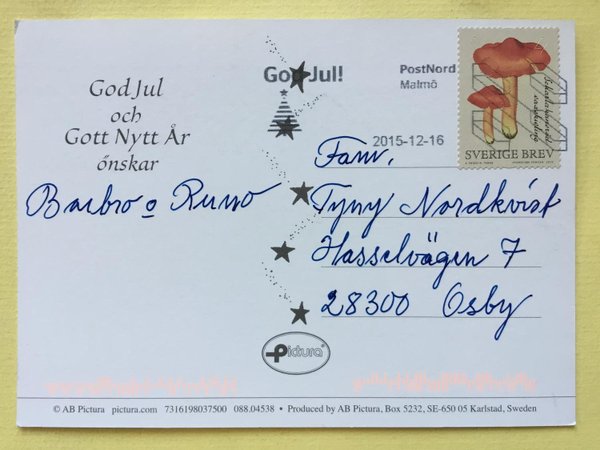 God Jul
och
Gott Nytt År
önskar
Barbro o Runo
God Jul!
PostNord
Malmö
2015-12-16
SVERIGE BREV
Fam.
Tyny Nordkvist
Hasselvägen 7
28300 Osby
Pictura
© AB Pictura pictura.com 7316198037500 088.04538 • Produced by AB Pictura, Box 5232, SE-650 05 Karlstad, Sweden